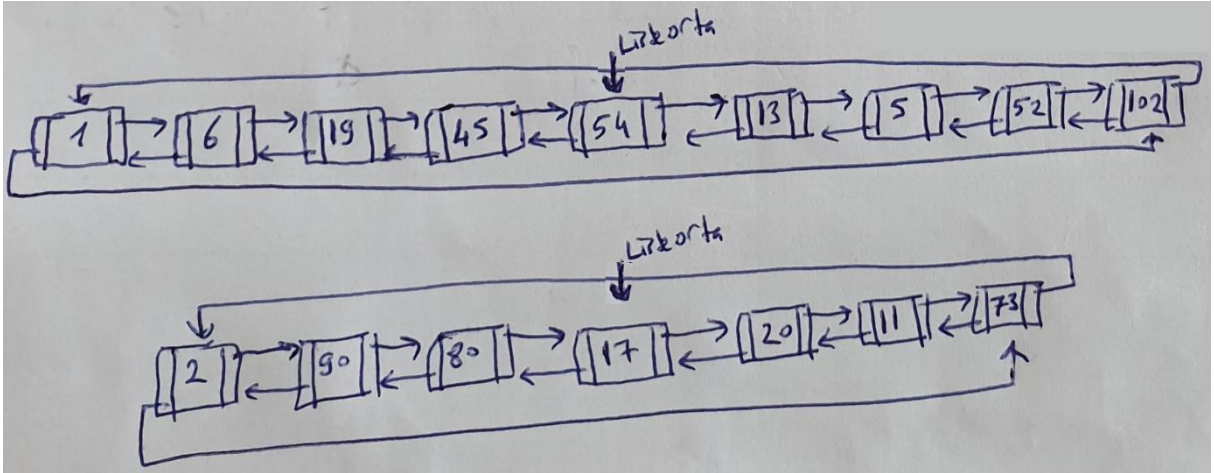 Liskorta
1 6 19 45 54 13 5 52 102
Liskorta
2 90 80 17 20 11 73